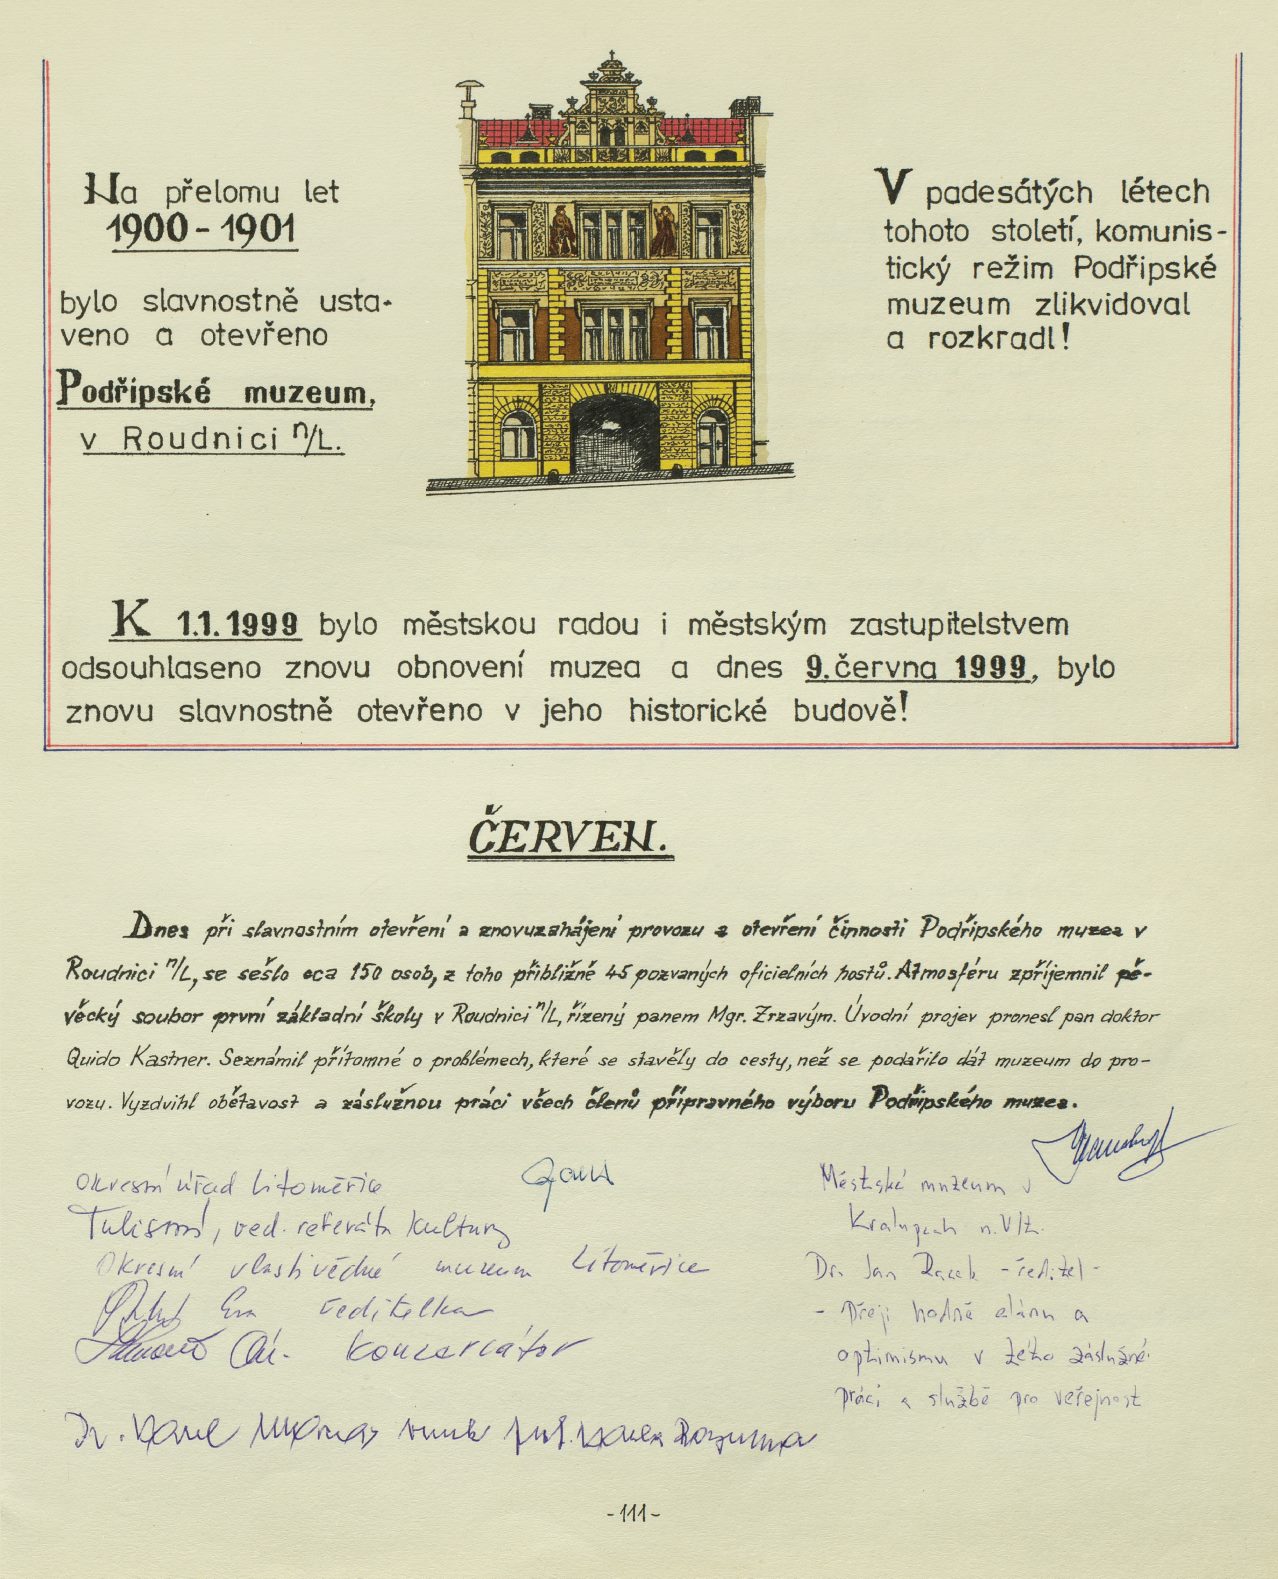 Na přelomu let
1900 - 1901
bylo slavnostně usta-
veno a otevřeno
Podřipské muzeum,
v Roudnici n/L.
V padesátých létech
tohoto století, komunis-
tický režim Podřipské
muzeum zlikvidoval
a rozkradl!
K 1.1.1999 bylo městskou radou i městským zastupitelstvem
odsouhlaseno znovu obnovení muzea a dnes 9. června 1999, bylo
znovu slavnostně otevřeno v jeho historické budově!
ČERVEN.
Dnes při slavnostním otevření a znovuzahájení provozu a otevření činnosti Podřipského muzea v
Roudnici n/L, se sešlo cca 150 osob, z toho přibližně 45 pozvaných oficielních hostů. Atmosféru zpříjemnil pě-
věcký soubor první základní školy v Roudnici n/L, řízený panem Mgr. Zrzavým. Úvodní projev pronesl pan doktor
Quido Kastner. Seznámil přítomné o problémech, které se stavěly do cesty, než se podařilo dát muzeum do pro-
vozu. Vyzdvihl obětavost a záslužnou práci všech členů přípravného výboru Podřipského muzea.
Okresní úřad Litoměřice
ved. referátu kultury
Okresní vlastivědné muzeum Litoměřice
Eva ředitelka
konzervátor
Dr. Karel
Městské muzeum v
Kralupech n. Vlt.
Dr. Jan Racek - ředitel -
- Přeji hodně elánu a
optimismu v této záslužné
práci a službě pro veřejnost
- 111 -